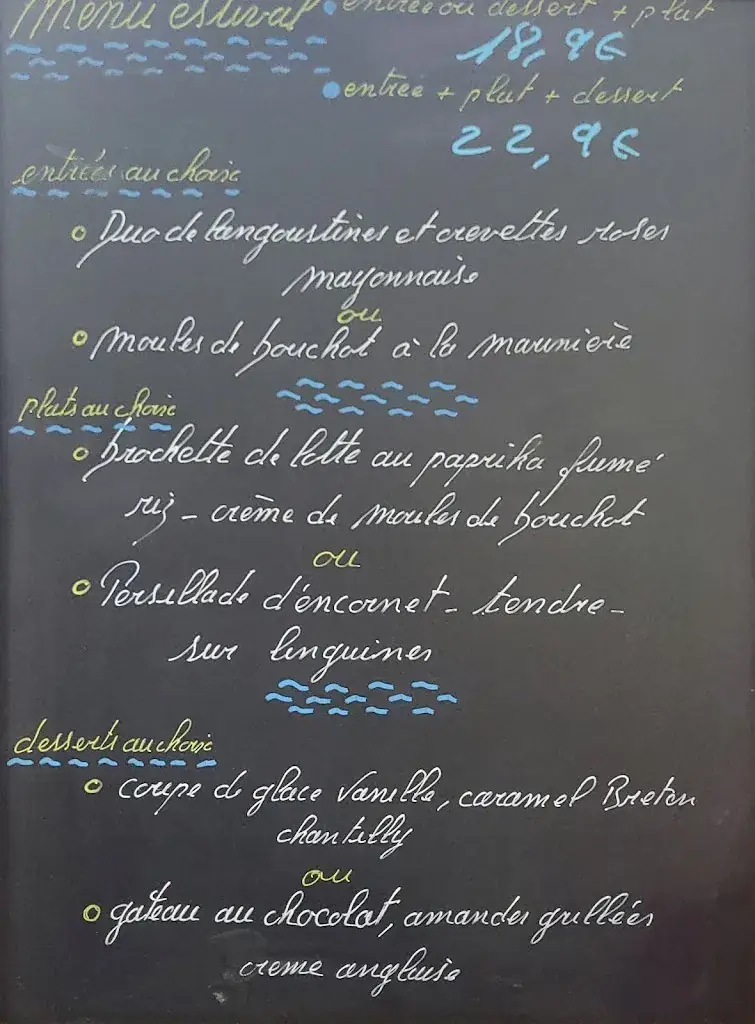 Menu estival
• entrée ou dessert + plat
18,9€
• entrée + plat + dessert
22,9€
entrées au choix
o Duo de langoustines et crevettes roses
mayonnaise
ou
o moules de bouchot à la marinière
plats au choix
o brochette de lotte au paprika fumé
riz - crème de moules de bouchot
ou
o Persillade d'encornet - tendre -
sur linguines
desserts au choix
o coupe de glace vanille, caramel Breton
chantilly
ou
o gateau au chocolat, amandes grillées
creme anglaise